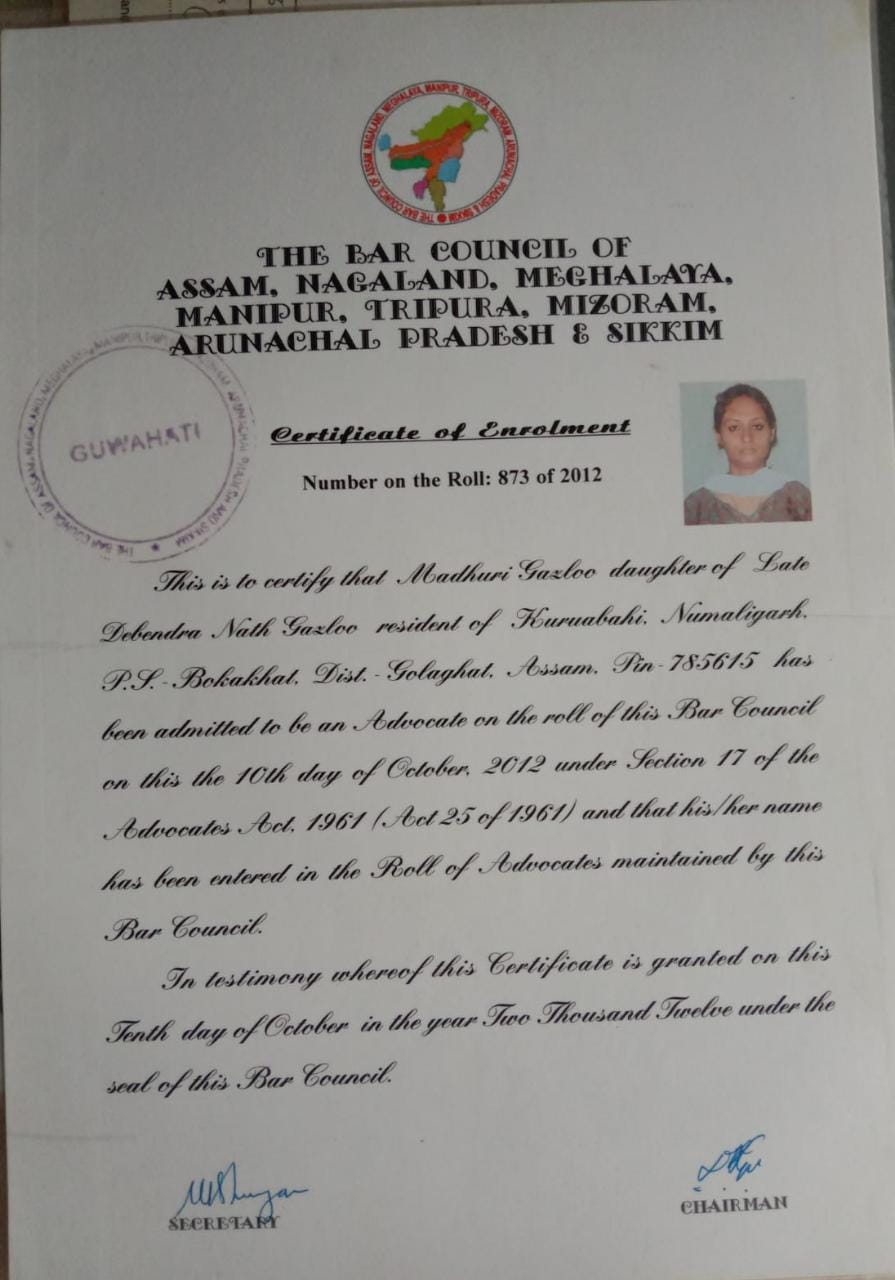 THE BAR COUNCIL OF ASSAM, NAGALAND, MEGHALAYA, MANIPUR, TRIPURA, MIZORAM, ARUNACHAL PRADESH & SIKKIM
THE BAR COUNCIL OF
ASSAM, NAGALAND, MEGHALAYA,
MANIPUR, TRIPURA, MIZORAM,
ARUNACHAL PRADESH & SIKKIM
GUWAHATI
THE BAR COUNCIL OF ASSAM, NAGALAND, MEGHALAYA, MANIPUR, ARUNACHAL PRADESH AND SIKKIM
Certificate of Enrolment
Number on the Roll: 873 of 2012
This is to certify that Madhuri Gazloo daughter of Late
Debendra Nath Gazloo resident of Kuruabahi, Numaligarh,
P.S.-Bokakhat, Dist.-Golaghat, Assam, Pin-785615 has
been admitted to be an Advocate on the roll of this Bar Council
on this the 10th day of October, 2012 under Section 17 of the
Advocates Act, 1961 (Act 25 of 1961) and that his/her name
has been entered in the Roll of Advocates maintained by this
Bar Council.
In testimony whereof this Certificate is granted on this
Tenth day of October in the year Two Thousand Twelve under the
seal of this Bar Council.
SECRETARY
CHAIRMAN